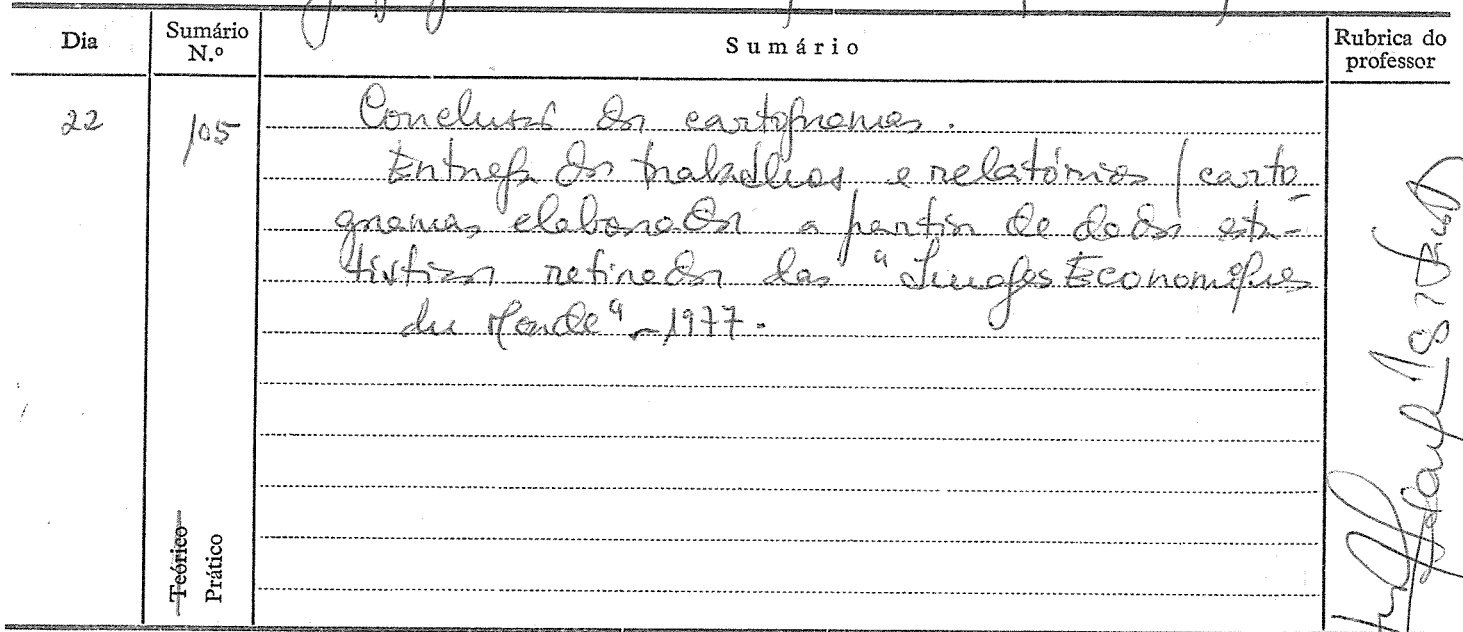 Dia
Sumário N.º
Sumário
Rubrica do professor
22
105
Conclusão dos cartogramas.
Entrega dos trabalhos e relatórios (carto-
gramas elaborados a partir de dados esta-
tísticos retirados das "Images Economiques
du Monde" - 1977.
Teórico
Prático